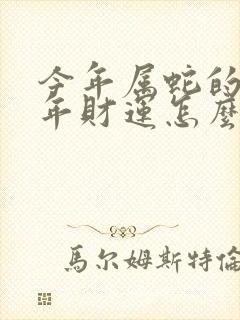 今年属蛇的
年財運怎麼
馬尔姆斯特倫